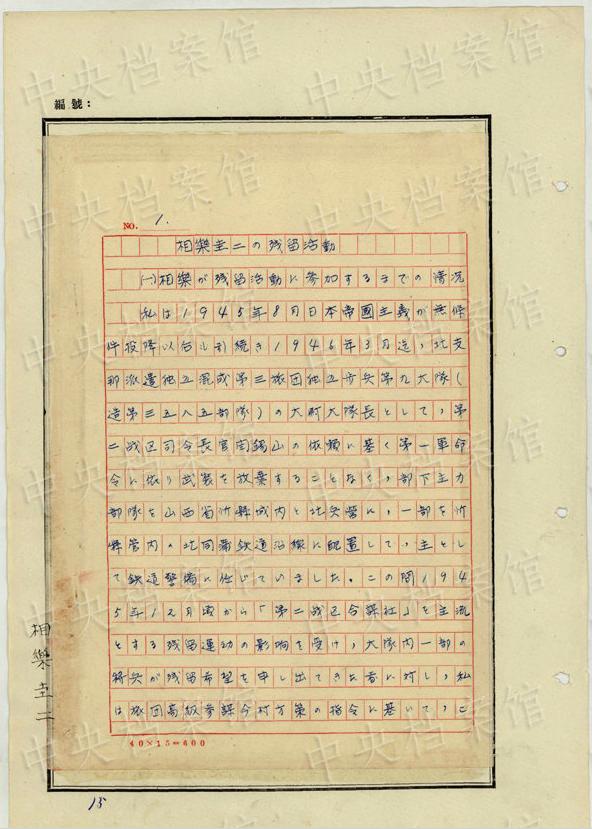 編號：
NO. 1.
相樂圭二の残留活動
(一)相樂が残留活動に参加するまでの情況
私は1945年8月日本帝國主義が無條
件投降以后も引続き1946年3月迄，北支
那派遣独立混成第三旅団独立歩兵第九大隊（
造第三五八五部隊）の大隊長として，第
二战区司令長官閻錫山の依頼に基く第一軍命
令に依り武装を放棄することなく，部下主力
部隊を山西省忻縣城内と北兵営に，一部を忻
縣管内の北同蒲鉄道沿線に配置して，主とし
て鉄道警備に任じていました。この間194
5年12月頃から「第二战区合謀社」を主流
とする残留運动の影响を受け，大隊内一部の
将兵が残留希望を申し出てきた者に対し，私
は旅団高級参謀今村方策の指令に基いて，こ
40×15＝600
相樂圭二
15
中央档案馆